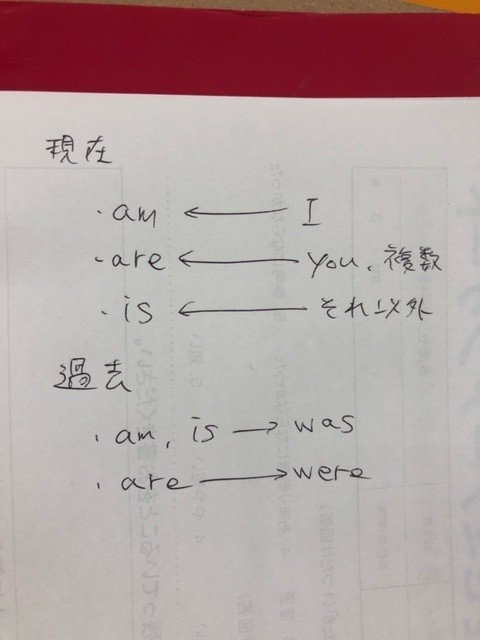 現在
・am ← I
・are ← you、複数
・is ← それ以外
過去
・am, is → was
・are → were